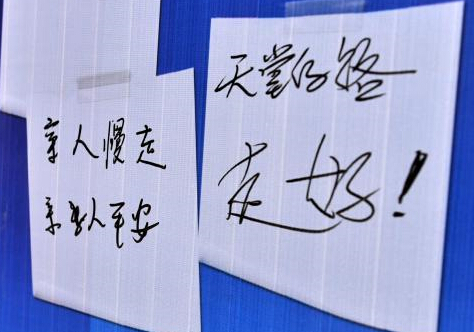 亲人慢走
亲人平安
天堂的路
走好！